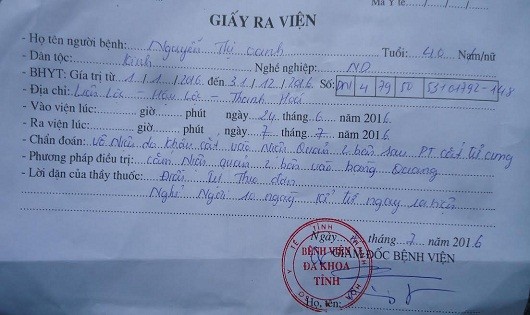 Mã Y tế
GIẤY RA VIỆN
- Họ tên người bệnh: Nguyễn Thị Oanh Tuổi: 40 Nam/nữ
- Dân tộc: Kinh Nghề nghiệp: ND
- BHYT: Giá trị từ 1 / 1 / 2016 đến 31 / 12 / 2016 Số: DN 4 79 50 53101792-148
- Địa chỉ: Lộc - Hậu Lộc - Thanh Hoá
- Vào viện lúc: giờ phút ngày 24 tháng 6 năm 2016
- Ra viện lúc: giờ phút ngày 7 tháng 7 năm 2016
- Chẩn đoán: Vô Niệu do khâu cắt vào Niệu Quản 2 bên sau PT cắt tử cung
- Phương pháp điều trị: cắm Niệu quản 2 bên vào bàng Quang
- Lời dặn của thầy thuốc: Điều trị Theo đơn
Nghỉ Ngơi 10 ngày kể từ ngày ra viện
Ngày tháng 7 năm 2016
GIÁM ĐỐC BỆNH VIỆN
BỆNH VIỆN
ĐA KHOA
TỈNH
Họ, tên: